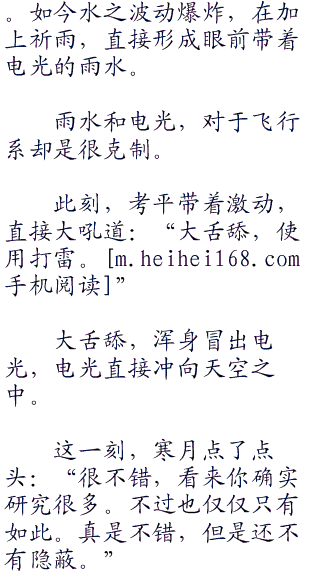 。如今水之波动爆炸，在加
上祈雨，直接形成眼前带着
电光的雨水。
雨水和电光，对于飞行
系却是很克制。
此刻，考平带着激动，
直接大吼道：“大舌舔，使
用打雷。[m.heihei168.com
手机阅读]”
大舌舔，浑身冒出电
光，电光直接冲向天空之
中。
这一刻，寒月点了点
头：“很不错，看来你确实
研究很多。不过也仅仅只有
如此。真是不错，但是还不
有隐蔽。”